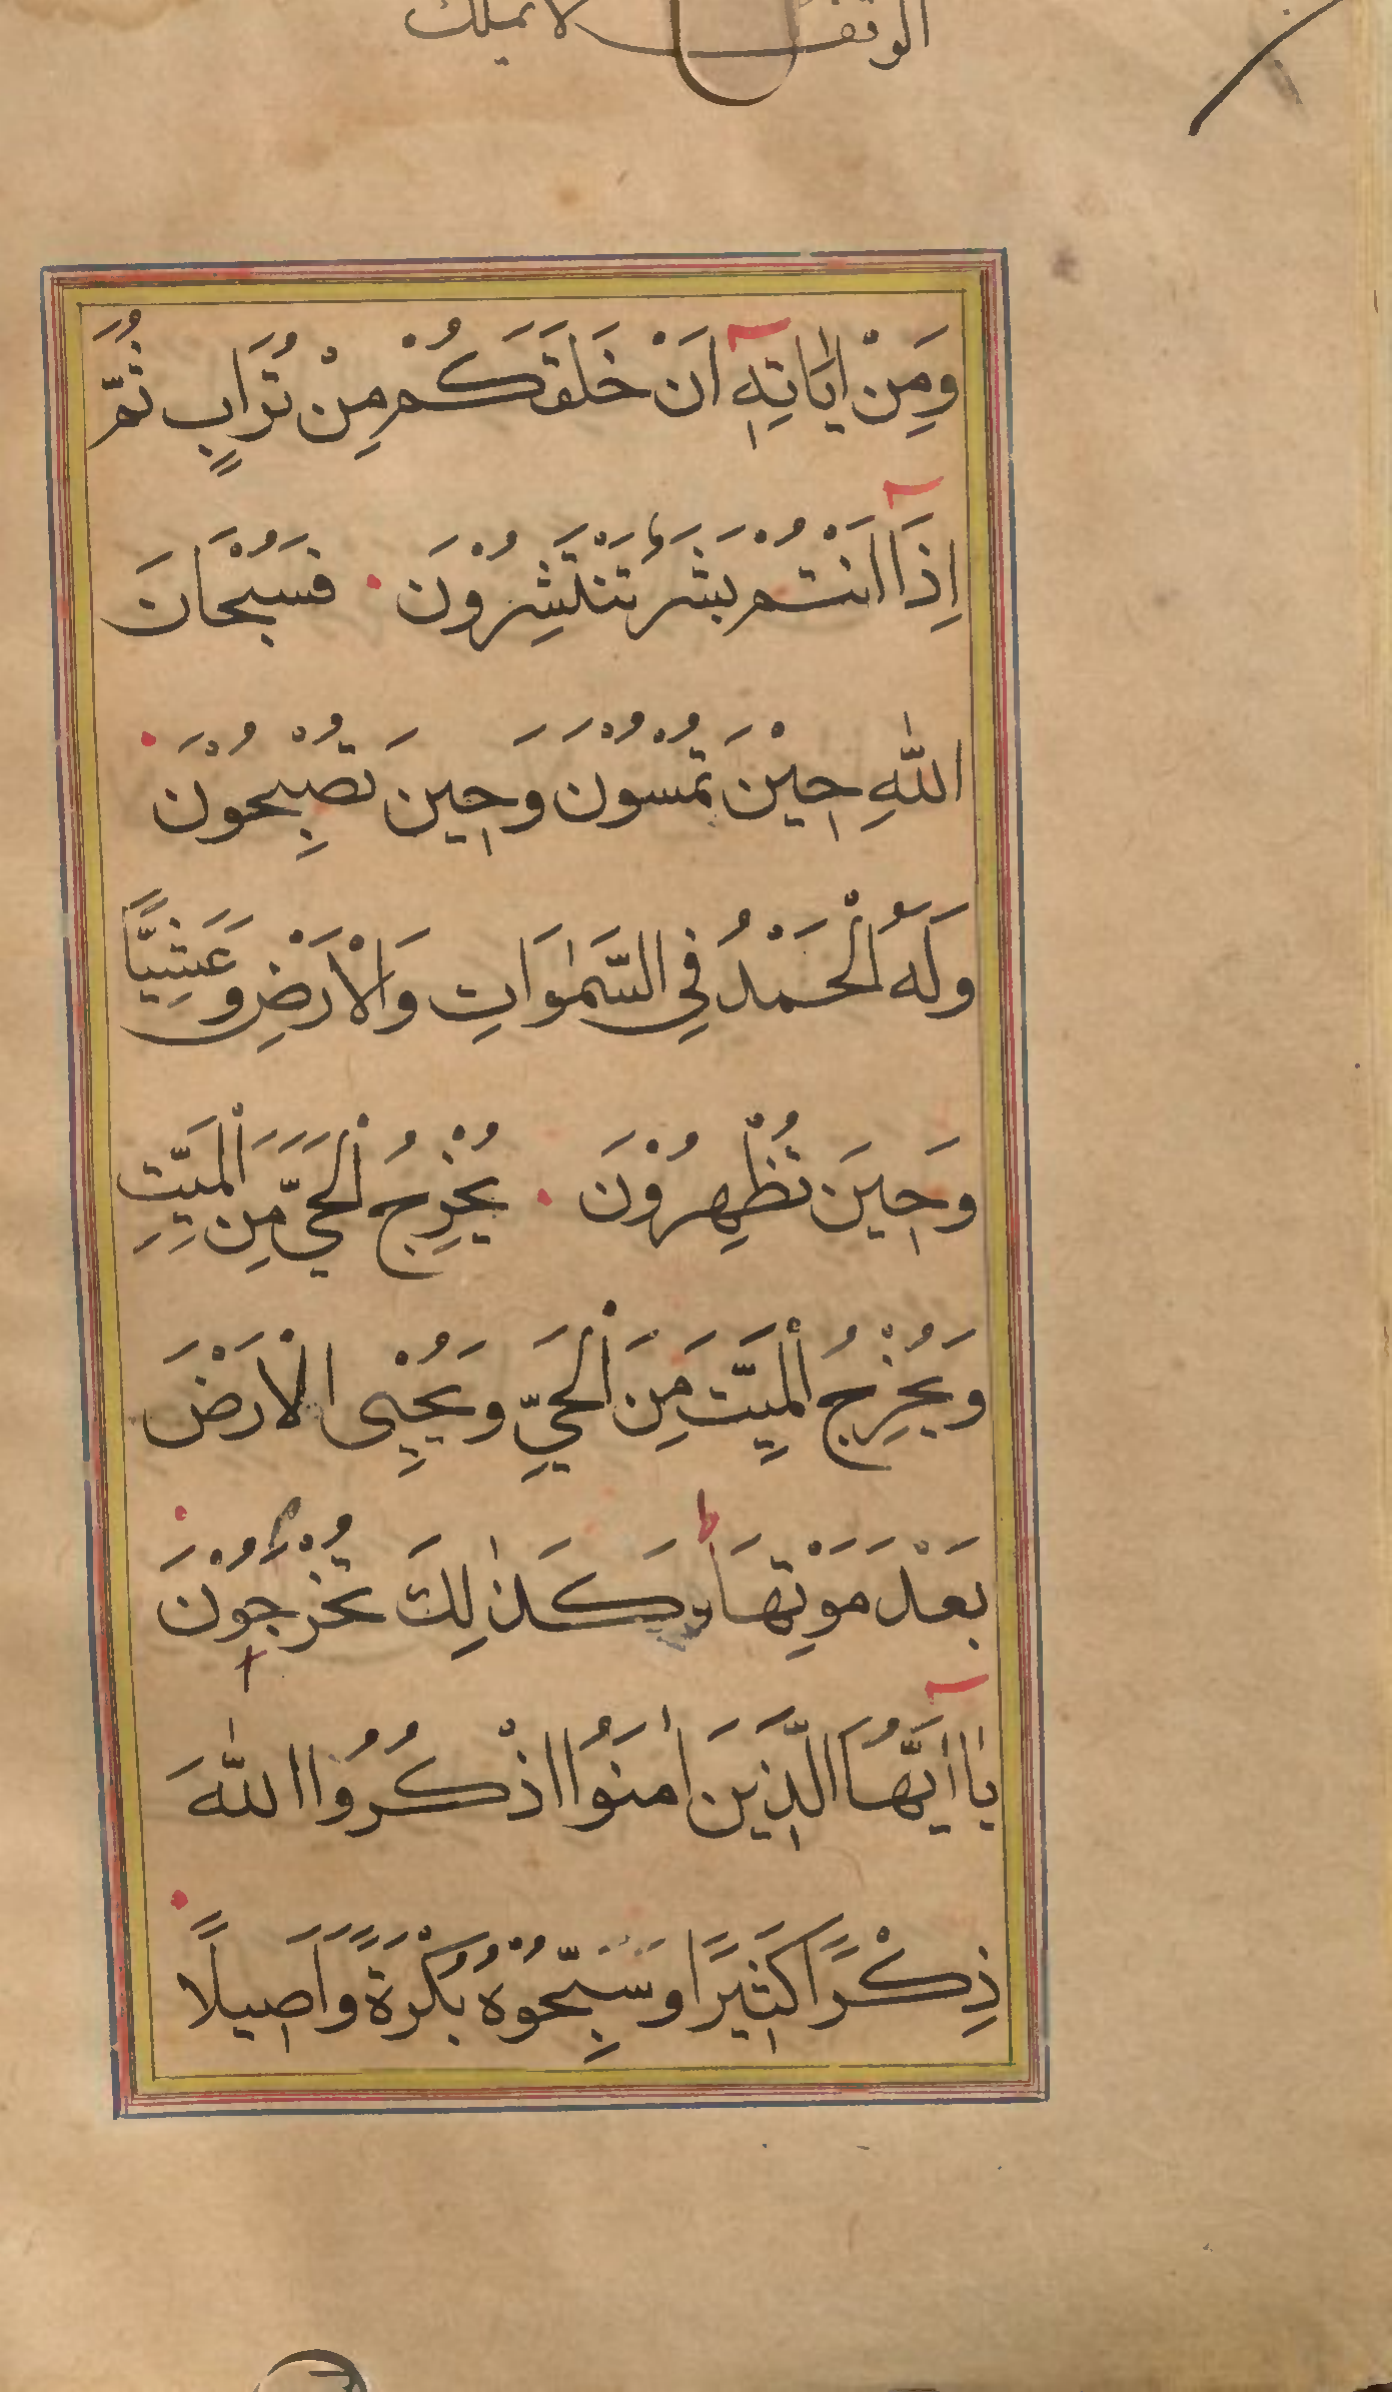 الوقف لا يملك
وَمِنْ اٰيَاتِهٖٓ اَنْ خَلَقَكُمْ مِنْ تُرَابٍ ثُمَّ
اِذَٓا اَنْتُمْ بَشَرٌ تَنْتَشِرُوْنَ فَسُبْحَانَ
اللّٰهِ حِيْنَ تُمْسُوْنَ وَحِينَ تُصْبِحُوْنَ
وَلَهُ الْحَمْدُ فِي السَّمٰوَاتِ وَالْاَرْضِ وَعَشِيًّا
وَحِينَ تُظْهِرُوْنَ يُخْرِجُ الْحَيَّ مِنَ الْمَيِّتِ
وَيُخْرِجُ الْمَيِّتَ مِنَ الْحَيِّ وَيُحْيِى الْاَرْضَ
بَعْدَ مَوْتِهَا وَكَذٰلِكَ تُخْرَجُوْنَ
يَٓا اَيُّهَا الَّذِينَ اٰمَنُوا اذْكُرُوا اللّٰهَ
ذِكْرًا كَثِيرًا وَسَبِّحُوْهُ بُكْرَةً وَاَصِيلًا